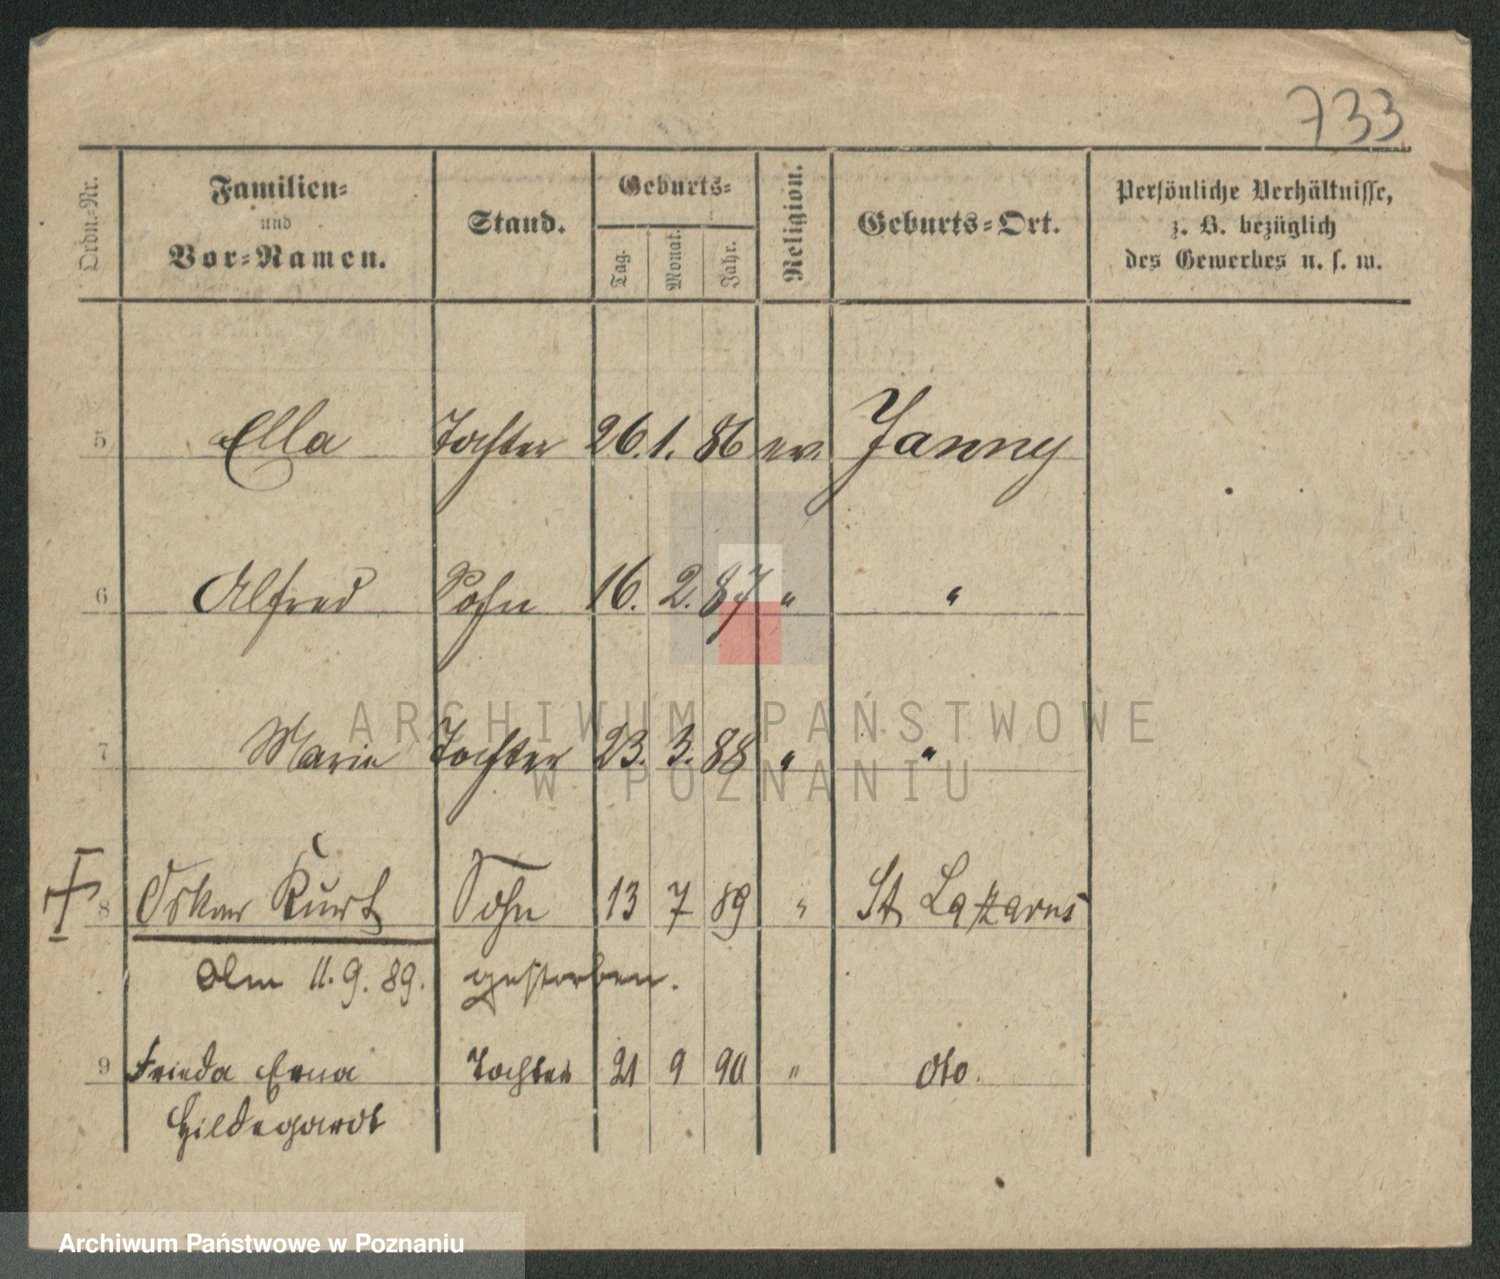 733
Ordn.-Nr. Familien- und Vor-Namen. Stand. Geburts- Tag. Monat. Jahr. Religion. Geburts-Ort. Persönliche Verhältnisse, z. B. bezüglich des Gewerbes u. s. w.
5 Ella Tochter 26. 1. 86 ev. Janny
6 Alfred Sohn 16. 2. 87 " "
7 Marie Tochter 23. 3. 88 " "
ARCHIWUM PAŃSTWOWE
W POZNANIU
8 Oskar Kurt Sohn 13 7 89 " St. Lazarus
Am 11. 9. 89. gestorben.
9 Frieda Erna Tochter 21 9 90 " dto.
Hildegardt
Archiwum Państwowe w Poznaniu